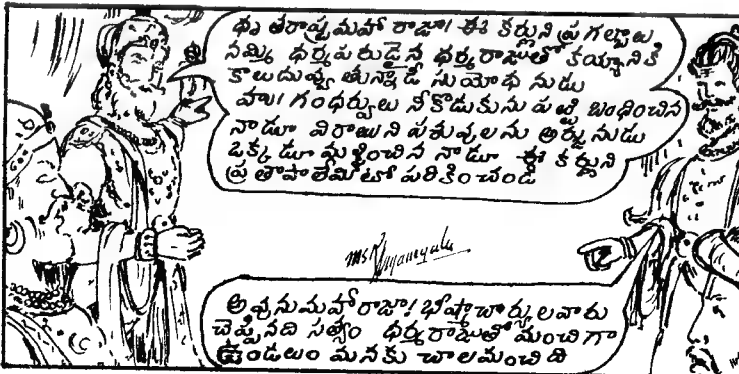 ధృతరాష్ట్రమహారాజా! ఈ కర్ణుని ప్రగల్భాలు
నమ్మి ధర్మపరుడైన ధర్మరాజుతో కయ్యానికి
కాలుదువ్వుతున్నాడీ సుయోధనుడు
హు! గంధర్వులు నీకొడుకును పట్టి బంధించిన
నాడూ విరాటుని పశువులను అర్జునుడు
ఒక్కడూ మళ్లించిన నాడూ ఈ కర్ణుని
ప్రతాపాలేమిటో పరికించండి
అవునుమహారాజా! భీష్మాచార్యులవారు
చెప్పినది సత్యం ధర్మరాజుతో మంచిగా
ఉండటం మనకు చాలమంచిది